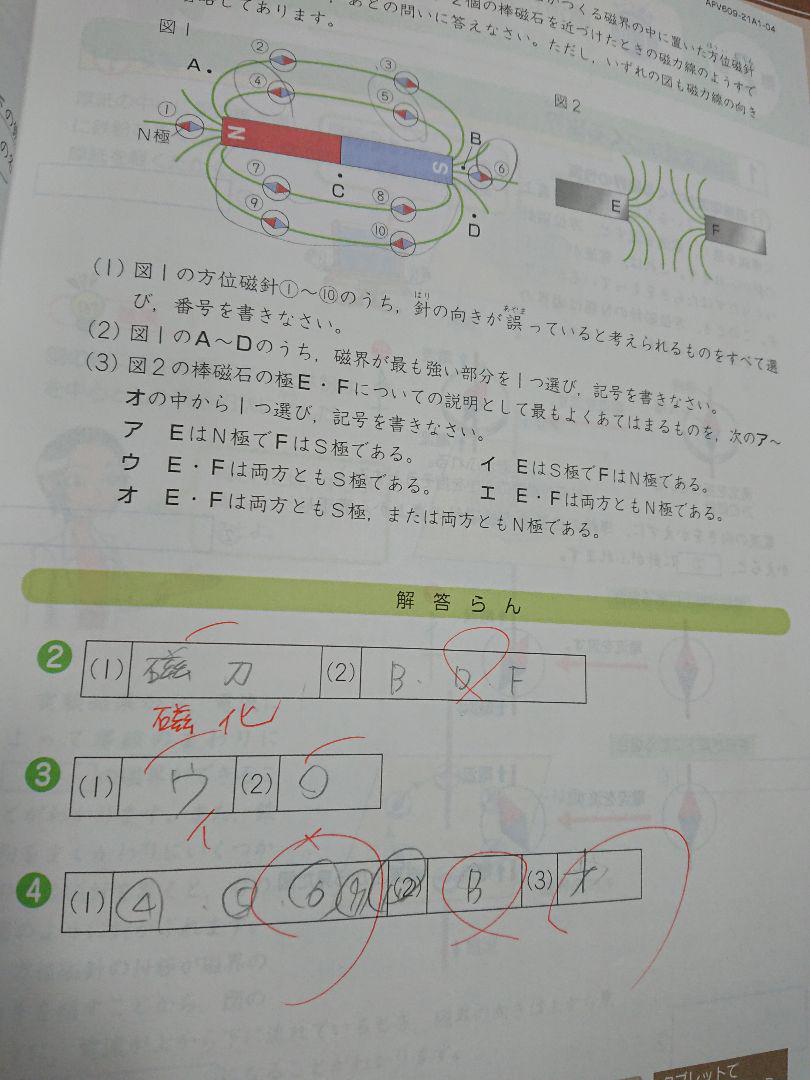 APV609-21A1-04
がつくる磁界の中に置いた方位磁針
2個の棒磁石を近づけたときの磁力線のようすで
あとの問いに答えなさい。ただし，いずれの図も磁力線の向き
してあります。
図1
A
② ③
④ ⑤
①
N極
N
S
B
⑥
C
⑦ ⑧
⑨ ⑩
D
図2
E
F
(1) 図1の方位磁針①～⑩のうち，針の向きが誤っていると考えられるものをすべて選
はり あやま
び，番号を書きなさい。
(2) 図1のA～Dのうち，磁界が最も強い部分を1つ選び，記号を書きなさい。
(3) 図2の棒磁石の極E・Fについての説明として最もよくあてはまるものを，次のア～
オの中から1つ選び，記号を書きなさい。
ア EはN極でFはS極である。 イ EはS極でFはN極である。
ウ E・Fは両方ともS極である。 エ E・Fは両方ともN極である。
オ E・Fは両方ともS極，または両方ともN極である。
解答らん
2 (1) 磁力 (2) B . D F
磁化
3 (1) ウ (2) ○
イ
4 (1) ④ . ⑤ . ⑥ (2) B (3) オ